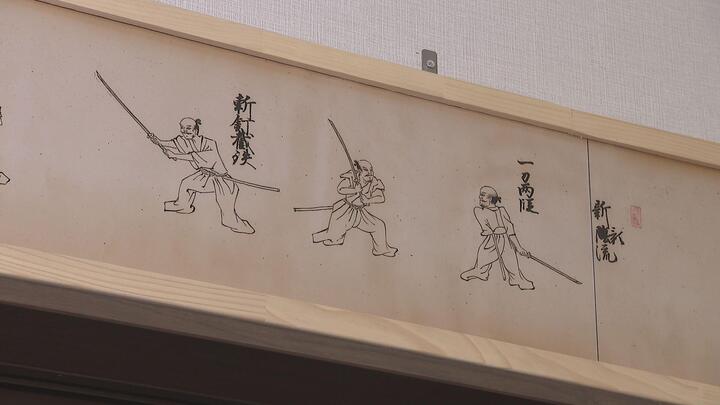 新陰流
一刀両段
斬釘截鉄